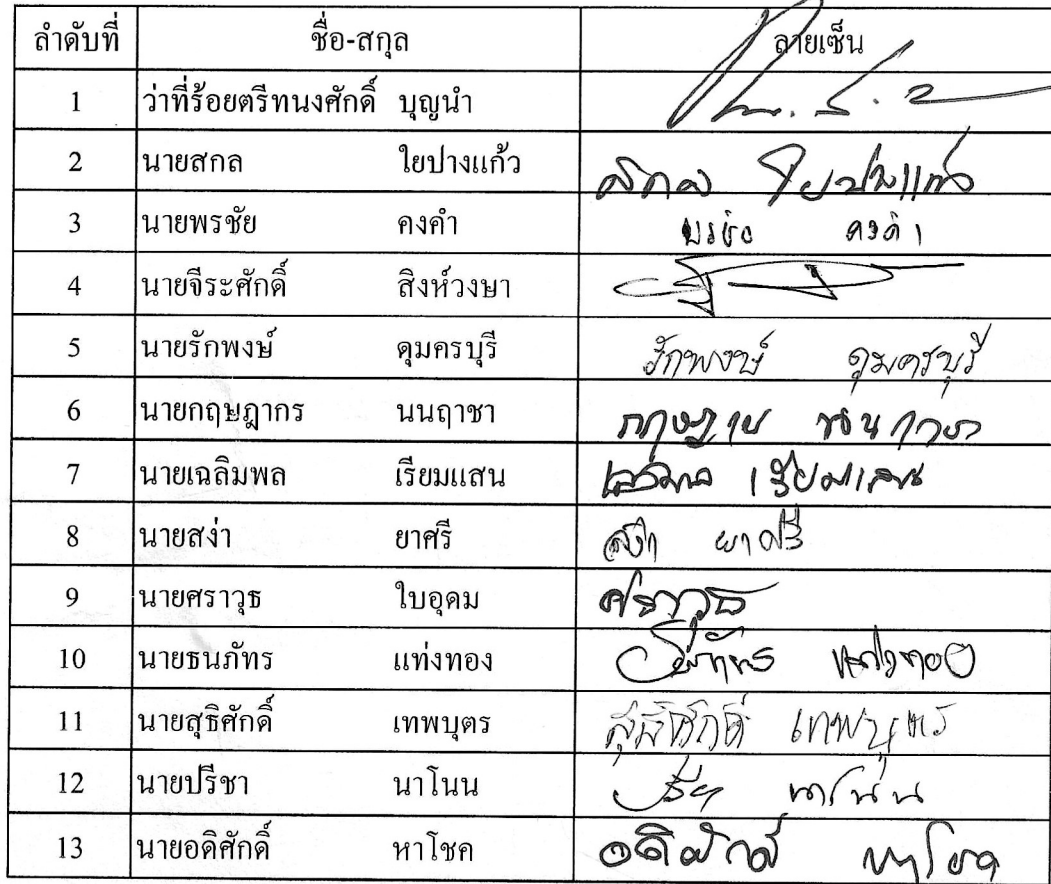 ลำดับที่ ชื่อ-สกุล ลายเซ็น
1 ว่าที่ร้อยตรีทนงศักดิ์ บุญนำ
2 นายสกล ใยปางแก้ว สกล ใยปางแก้ว
3 นายพรชัย คงคำ พรชัย คงคำ
4 นายจีระศักดิ์ สิงห์วงษา
5 นายรักพงษ์ ดุมครบุรี รักพงษ์ ดุมครบุรี
6 นายกฤษฎากร นนฤาชา กฤษฎากร นนฤาชา
7 นายเฉลิมพล เรียมแสน เฉลิมพล เรียมแสน
8 นายสง่า ยาศรี สง่า ยาศรี
9 นายศราวุธ ใบอุดม ศราวุธ
10 นายธนภัทร แท่งทอง ธนภัทร แท่งทอง
11 นายสุธิศักดิ์ เทพบุตร สุธิศักดิ์ เทพบุตร
12 นายปรีชา นาโนน ปรีชา นาโนน
13 นายอดิศักดิ์ หาโชค อดิศักดิ์ หาโชค